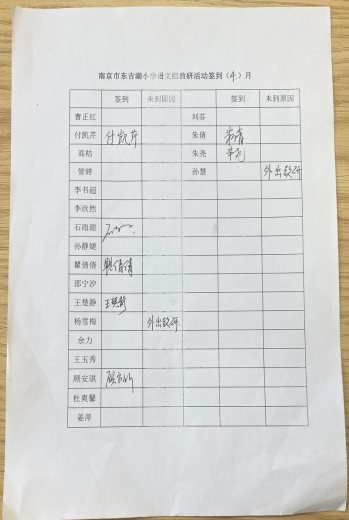 南京市东吉湖小学语文组教研活动签到（4.）月
签到 未到原因 签到 未到原因
曹正红 刘芬
付凯芹 付凯芹 朱倩 朱倩
高桔 朱尧 朱尧
管婷 孙慧 外出教研
李书超
李欣然
石雨甜
孙静婕
瞿倩倩 瞿倩倩
邵宁汐
王楚静 王楚静
杨雪梅 外出教研
余力
王玉秀
顾安琪
杜爽馨
姜萍